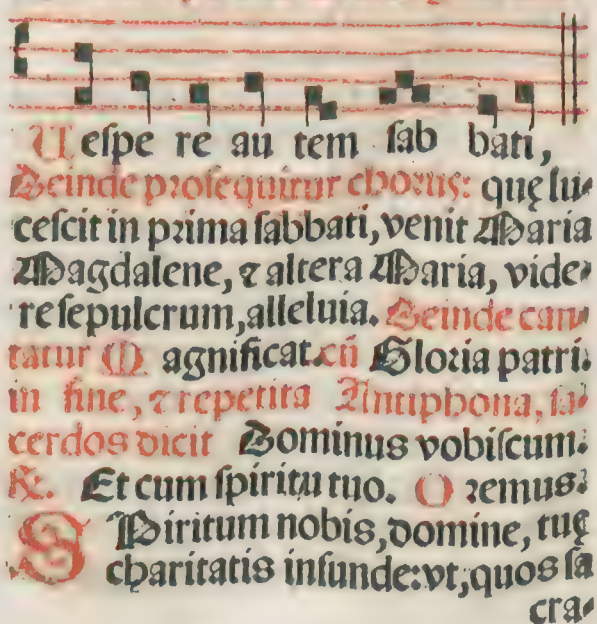 Veſpe re au tem ſab bati,
Deinde proſequitur chorus: quę lu-
ceſcit in prima ſabbati, venit Maria
Magdalene, ⁊ altera Maria, vide-
re ſepulcrum, alleluia. Deinde can-
tatur Magnificat. cū Gloria patri.
in fine, ⁊ repetita Antiphona, ſa-
cerdos dicit Dominus vobiſcum.
℟. Et cum ſpiritu tuo. Oremus.
SPiritum nobis, domine, tuę
charitatis infunde: vt, quos ſa
cra-